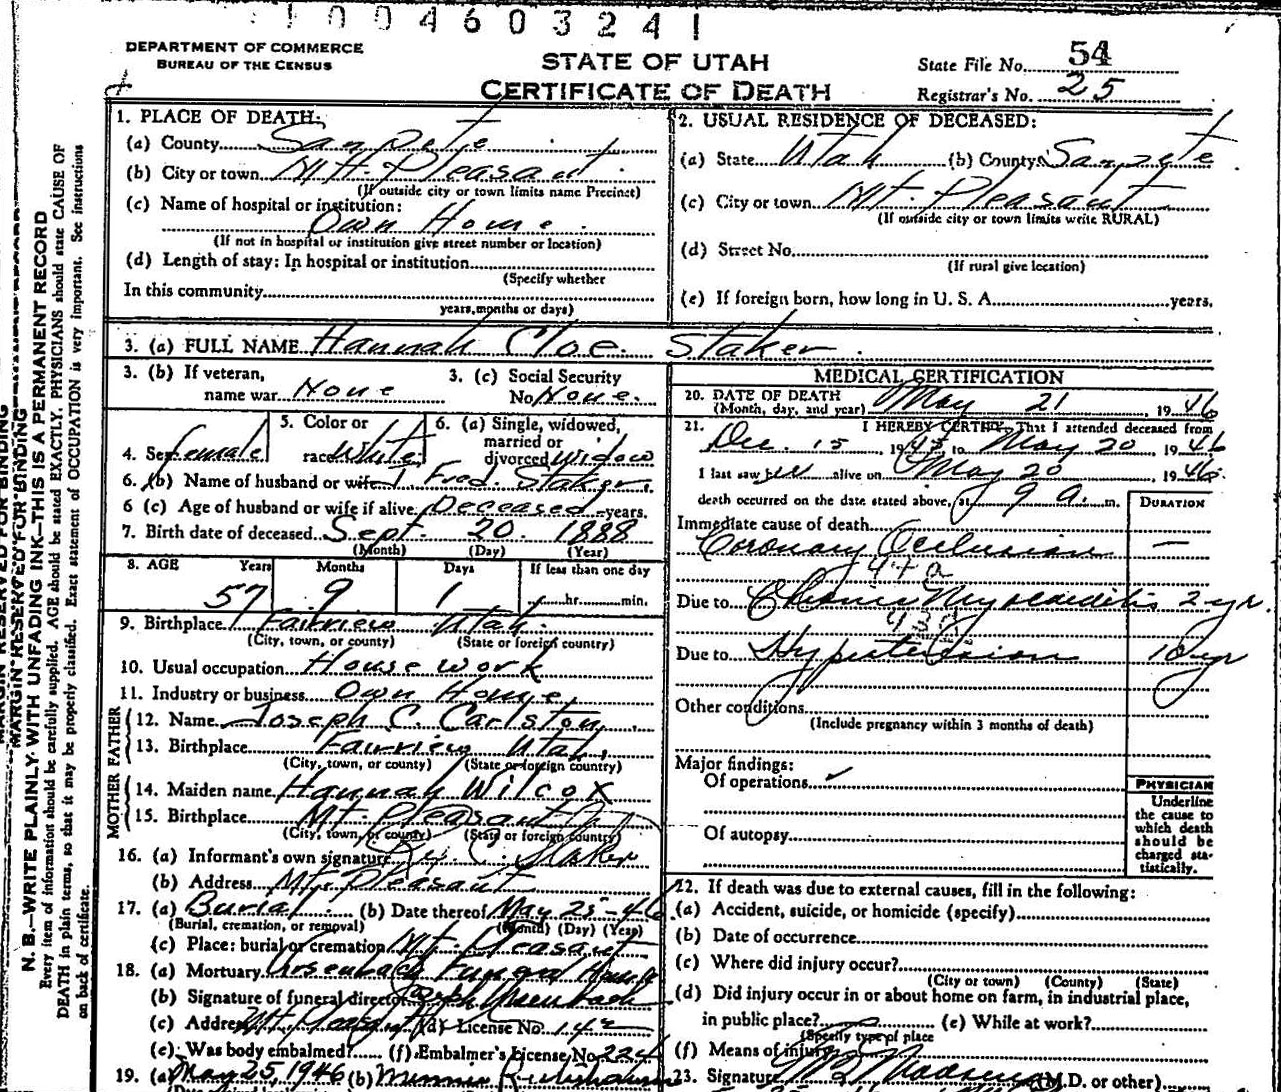 1004603241
DEPARTMENT OF COMMERCE
BUREAU OF THE CENSUS
STATE OF UTAH
CERTIFICATE OF DEATH
State File No. 54
Registrar's No. 25
MARGIN RESERVED FOR BINDING
N. B.—WRITE PLAINLY WITH UNFADING INK—THIS IS A PERMANENT RECORD
Every item of information should be carefully supplied. AGE should be stated EXACTLY. PHYSICIANS should state CAUSE OF
DEATH in plain terms, so that it may be properly classified. Exact statement of OCCUPATION is very important. See instructions
on back of certificate.
1. PLACE OF DEATH:
(a) County Sanpete
(b) City or town Mt. Pleasant
(If outside city or town limits name Precinct)
(c) Name of hospital or institution:
Own Home.
(If not in hospital or institution give street number or location)
(d) Length of stay: In hospital or institution
(Specify whether
In this community
years, months or days)
2. USUAL RESIDENCE OF DECEASED:
(a) State Utah (b) County Sanpete
(c) City or town Mt. Pleasant
(If outside city or town limits write RURAL)
(d) Street No.
(If rural give location)
(e) If foreign born, how long in U. S. A. years.
3. (a) FULL NAME Hannah Cloe Staker.
3. (b) If veteran,
name war None
3. (c) Social Security
No. None.
4. Sex female
5. Color or
race White
6. (a) Single, widowed,
married or
divorced Widow
6. (b) Name of husband or wife J Fred. Staker.
6 (c) Age of husband or wife if alive Deceased years.
7. Birth date of deceased Sept. 20. 1888
(Month) (Day) (Year)
8. AGE Years Months Days If less than one day
57 9 1 hr. min.
9. Birthplace Fairview Utah.
(City, town, or county) (State or foreign country)
10. Usual occupation House work
11. Industry or business Own Home.
FATHER
12. Name Joseph C. Carlston.
13. Birthplace Fairview Utah.
(City, town, or county) (State or foreign country)
MOTHER
14. Maiden name Hannah Wilcox
15. Birthplace Mt. Pleasant
(City, town, or county) (State or foreign country)
16. (a) Informant's own signature Staker
(b) Address Mt. Pleasant
17. (a) Burial. (b) Date thereof May 25-46
(Burial, cremation, or removal) (Month) (Day) (Year)
(c) Place: burial or cremation Mt. Pleasant
18. (a) Mortuary Ursenbach Funeral Home
(b) Signature of funeral director Ursenbach
(c) Address Mt. Pleasant (d) License No. 142
(e) Was body embalmed? (f) Embalmer's License No. 224
19. (a) May 25, 1946 (b) Minnie
MEDICAL CERTIFICATION
20. DATE OF DEATH
(Month, day, and year) May 21, 1946
21. I HEREBY CERTIFY, That I attended deceased from
Dec. 15 1945 to May 20, 1946
I last saw her alive on May 20, 1946.
death occurred on the date stated above, at 9 a. m.
DURATION
Immediate cause of death
Coronary Occlusion —
94a
Due to Chronic Myocarditis 2 yr.
Due to Hypertension 10 yr
Other conditions
(Include pregnancy within 3 months of death)
Major findings:
Of operations
Of autopsy
PHYSICIAN
Underline
the cause to
which death
should be
charged sta-
tistically.
22. If death was due to external causes, fill in the following:
(a) Accident, suicide, or homicide (specify)
(b) Date of occurrence
(c) Where did injury occur?
(City or town) (County) (State)
(d) Did injury occur in or about home on farm, in industrial place,
in public place? (e) While at work?
(Specify type of place
(f) Means of injury
23. Signature Madsen (M.D. or other)